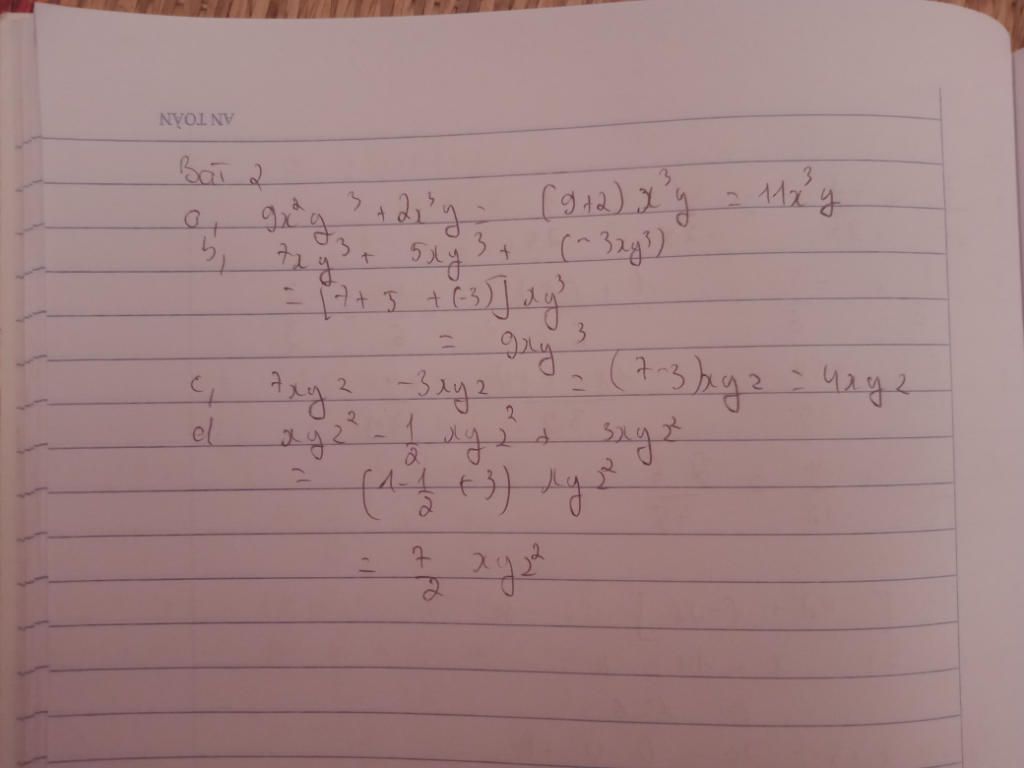 AN TOÀN
Bài 2
a, 9x²y³ + 2x³y = (9+2) x³y = 11x³y
b, 7xy³ + 5xy³ + (-3xy³)
= [7 + 5 + (-3)] xy³
= 9xy³
c, 7xyz - 3xyz = (7-3)xyz = 4xyz
d xyz² - 1/2 xyz² + 3xyz²
= (1 - 1/2 + 3) xyz²
= 7/2 xyz²